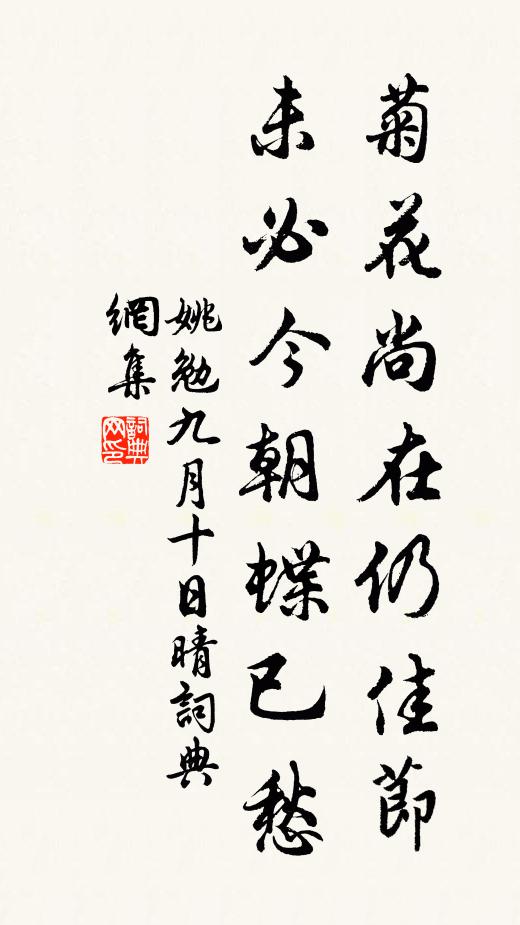 菊花尚在仍佳節
未必今朝蝶已愁
姚勉九月十日晴詞典
網集
詞典
网印